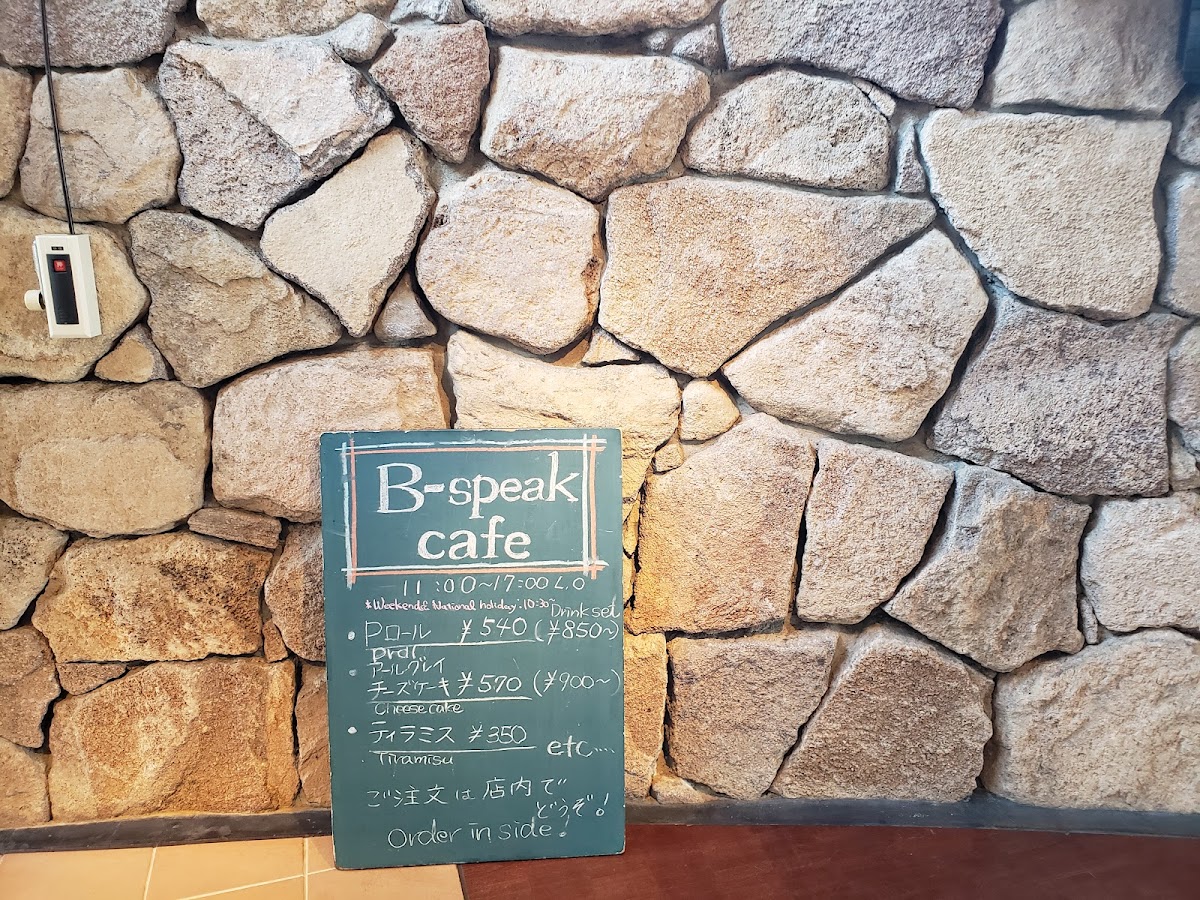 B-speak
cafe
11:00~17:00 L.O
*Weekend& National holiday:10:30~
Drink set
• Pロール ¥540 (¥850~)
• アールグレイ
チーズケーキ ¥570 (¥900~)
Cheese cake
• ティラミス ¥350
Tiramisu
etc....
ご注文は店内で
どうぞ!
Order in side!